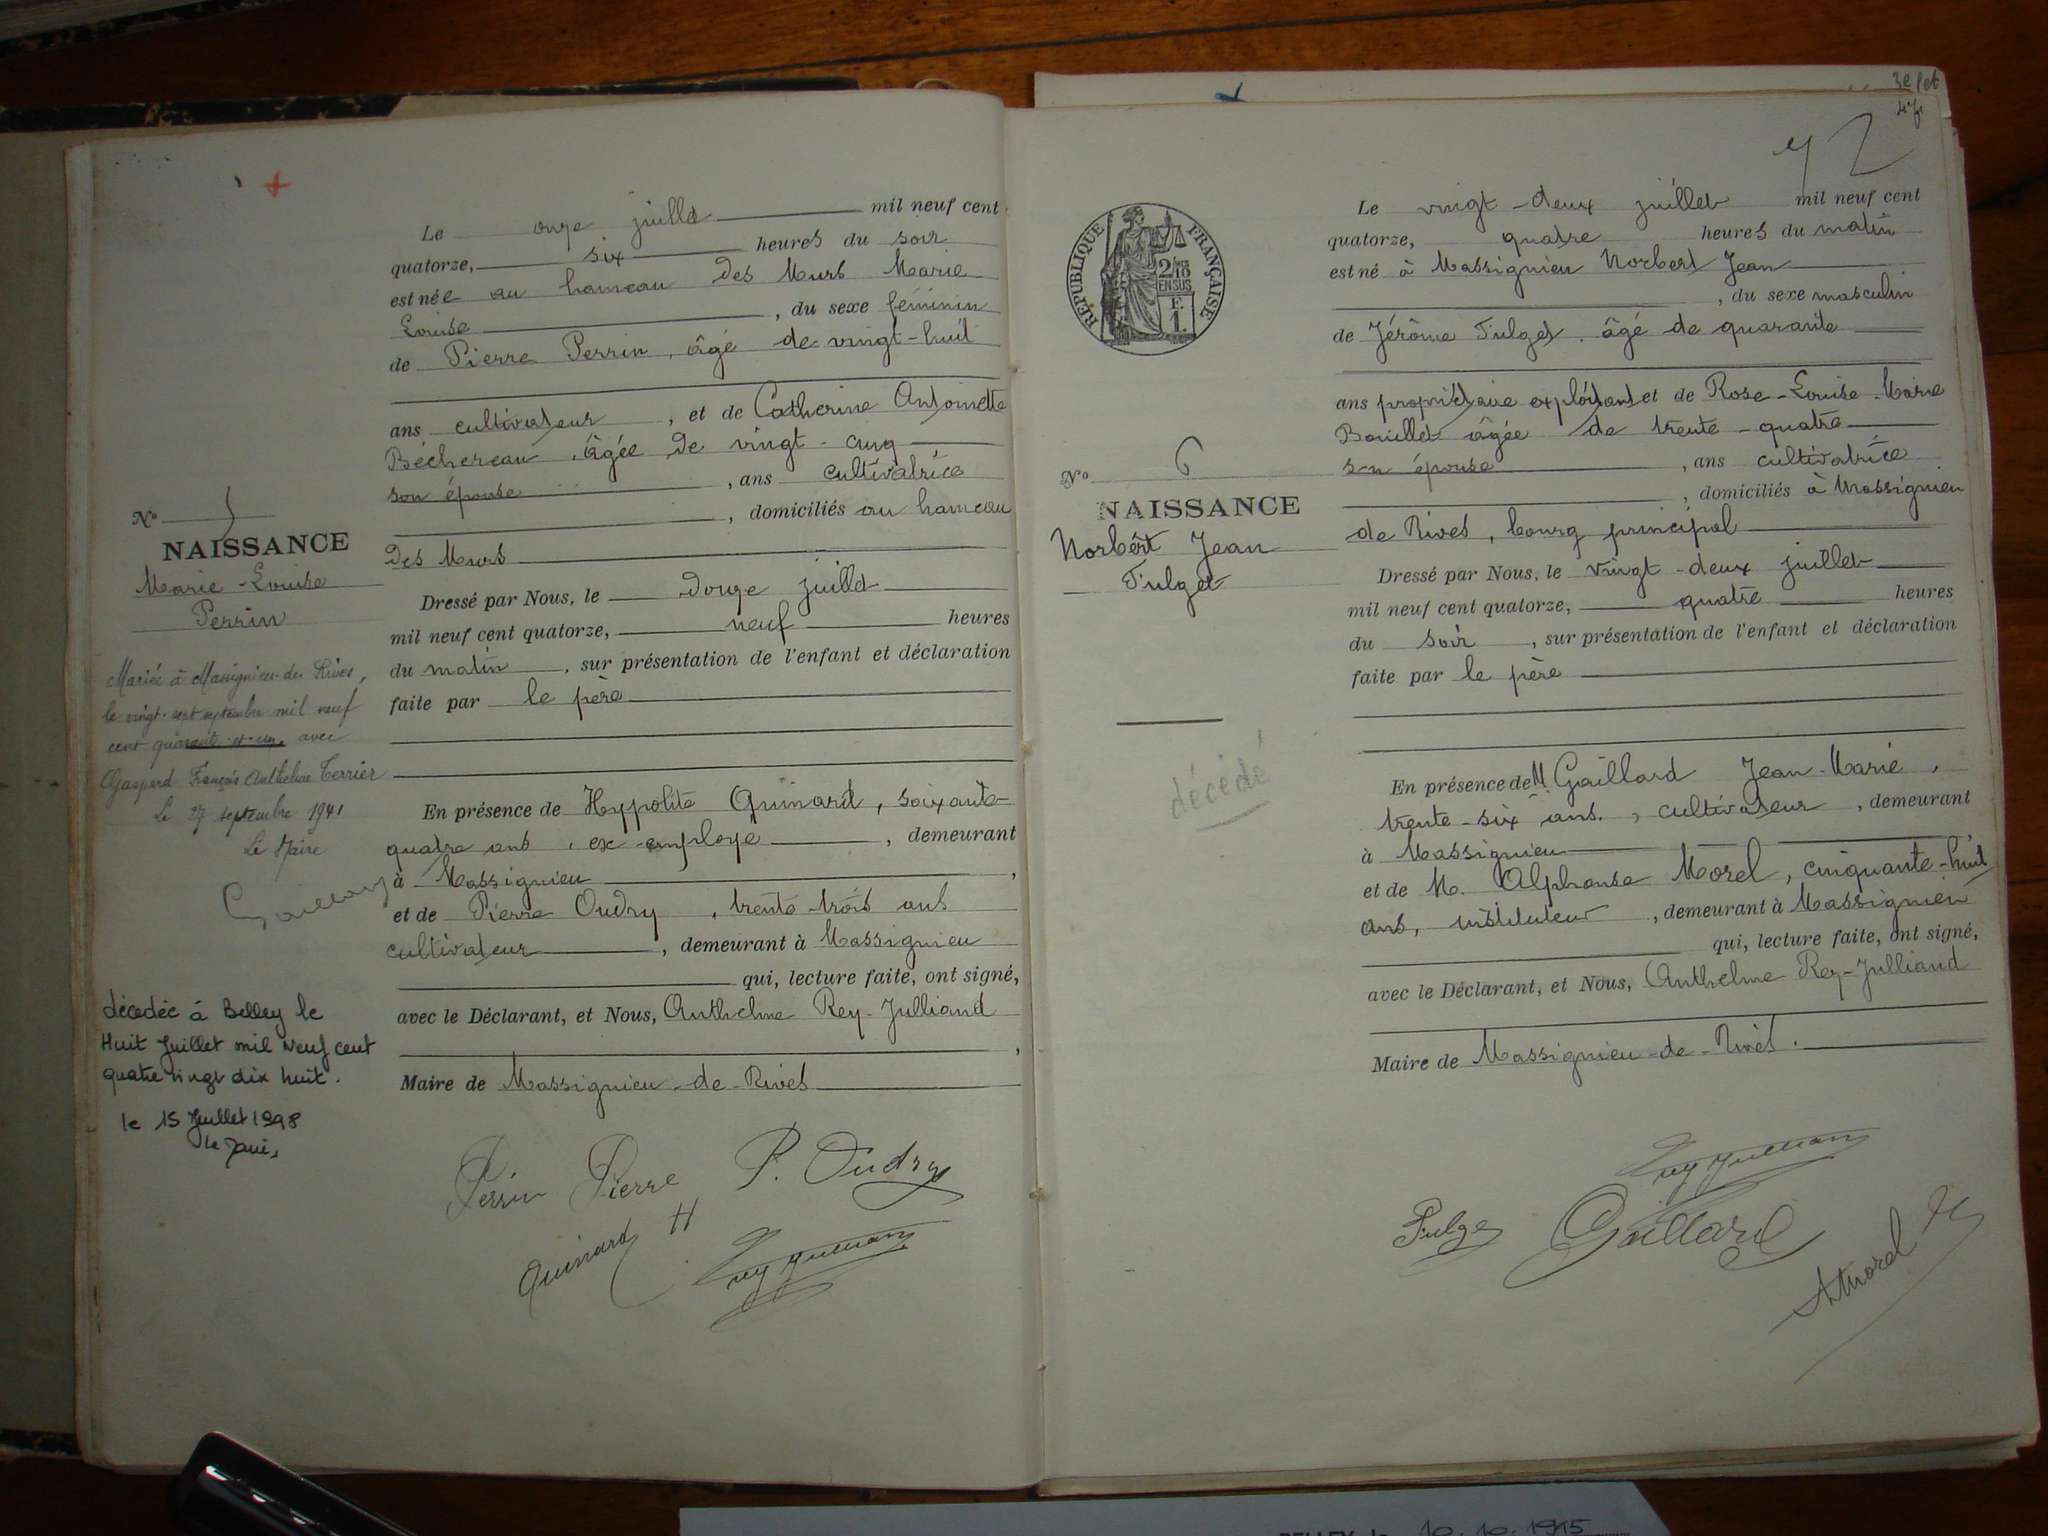 Le onze juillet mil neuf cent
quatorze, six heures du soir
est née au hameau des Murs Marie
Louise, du sexe féminin
de Pierre Perrin, âgé de vingt-huit
ans cultivateur, et de Catherine Antoinette
Béchereau, âgée de vingt-cinq
son épouse, ans cultivatrice
, domiciliés au hameau
des Murs
Dressé par Nous, le douze juillet
mil neuf cent quatorze, neuf heures
du matin, sur présentation de l'enfant et déclaration
faite par le père
En présence de Hyppolite Quinard, soixante-
quatre ans, ex-employé, demeurant
à Massignieu,
et de Pierre Oudry, trente-trois ans
cultivateur, demeurant à Massignieu
qui, lecture faite, ont signé,
avec le Déclarant, et Nous, Anthelme Rey-Julliand
,
Maire de Massignieu-de-Rives
Perrin Pierre P. Oudry
Quinard H
No 5
NAISSANCE
Marie-Louise
Perrin
Mariée à Massignieu-de-Rives,
le vingt-sept septembre mil neuf
cent quarante-et-un, avec
Gaspard François Anthelme Terrier
Le 27 septembre 1941
Le Maire
Gaillard
décédée à Belley le
Huit Juillet mil neuf cent
quatre vingt dix huit.
le 15 Juillet 1998
le Maire,
3e fet
42
RÉPUBLIQUE FRANÇAISE
2/10
EN SUS
F.
1.
Le vingt-deux juillet mil neuf cent
quatorze, quatre heures du matin
est né à Massignieu Norbert Jean
, du sexe masculin
de Jérôme Fulget, âgé de quarante
ans propriétaire exploitant et de Rose-Louise-Marie
Bouillet âgée de trente-quatre
son épouse, ans cultivatrice
, domiciliés à Massignieu
de Rives, bourg principal
Dressé par Nous, le vingt-deux juillet
mil neuf cent quatorze, quatre heures
du soir, sur présentation de l'enfant et déclaration
faite par le père
En présence de M. Gaillard Jean-Marie,
trente-six ans, cultivateur, demeurant
à Massignieu
et de M. Alphonse Morel, cinquante-huit
ans, instituteur, demeurant à Massignieu
qui, lecture faite, ont signé,
avec le Déclarant, et Nous, Anthelme Rey-Julliand
Maire de Massignieu-de-Rives.
Fulget Gaillard
A Morel
No 6
NAISSANCE
Norbert Jean
Fulget
décédé
10.10.1915